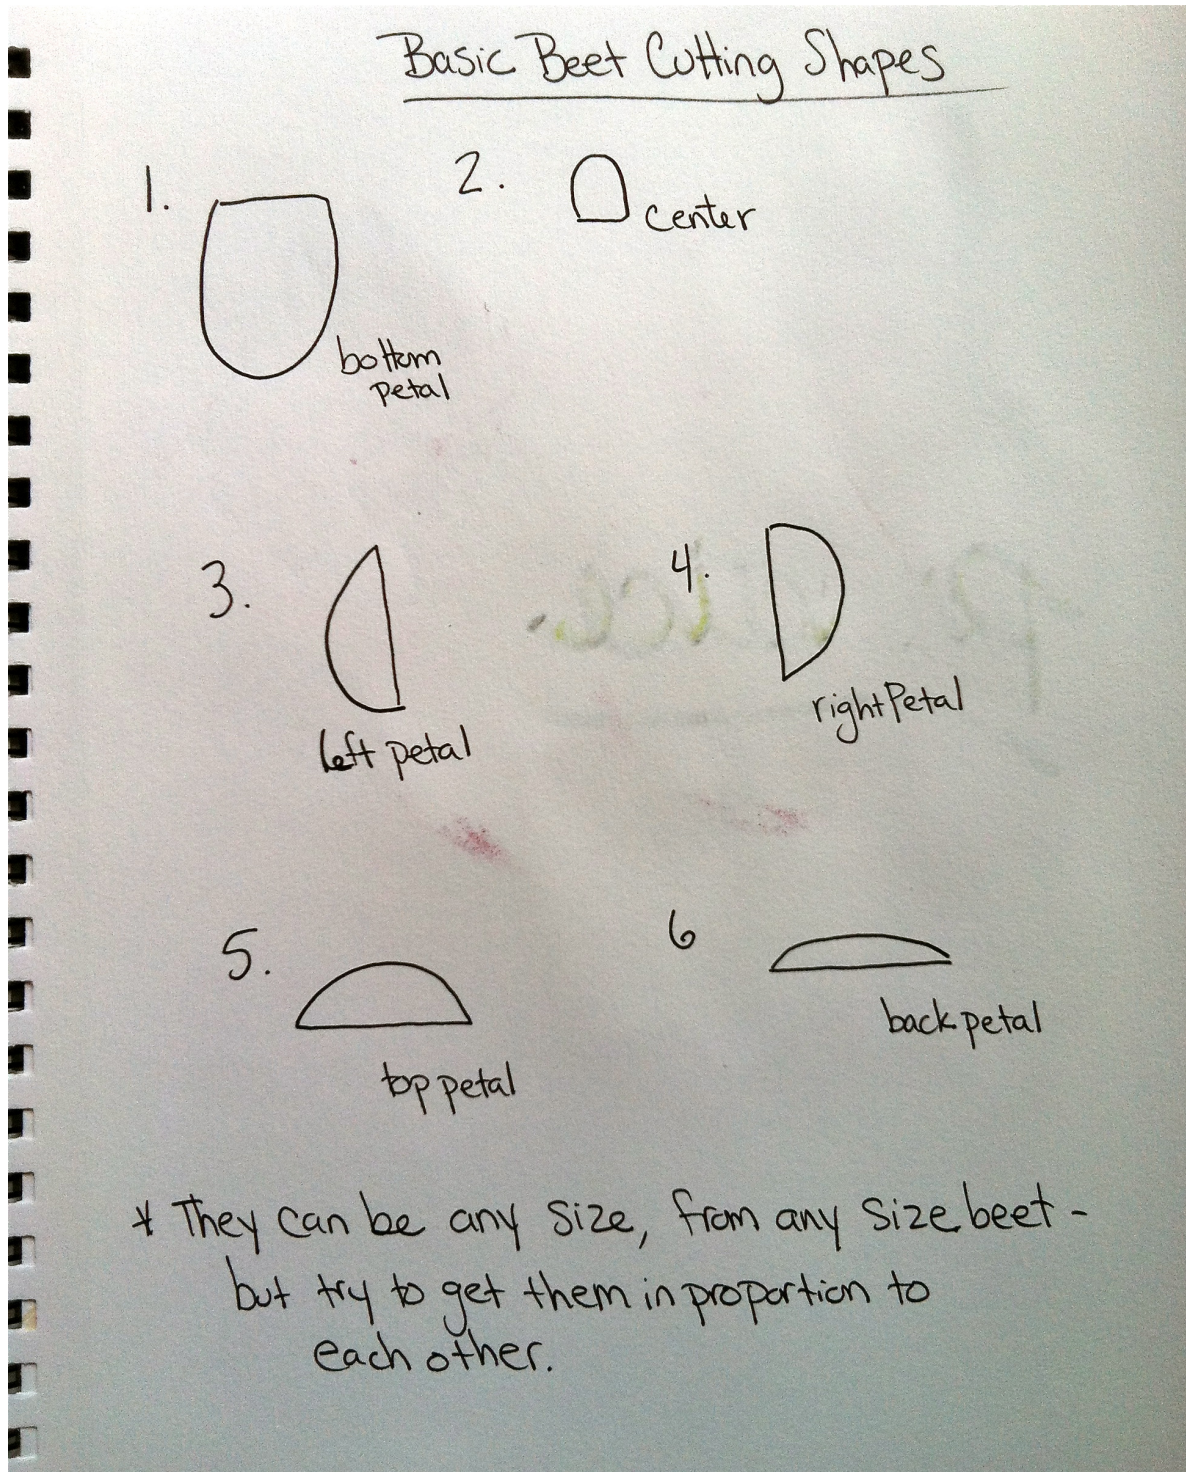 Basic Beet Cutting Shapes
1.
bottom
petal
2.
center
3.
left petal
4.
right Petal
5.
top petal
6
back petal
* They can be any size, from any size beet -
but try to get them in proportion to
each other.